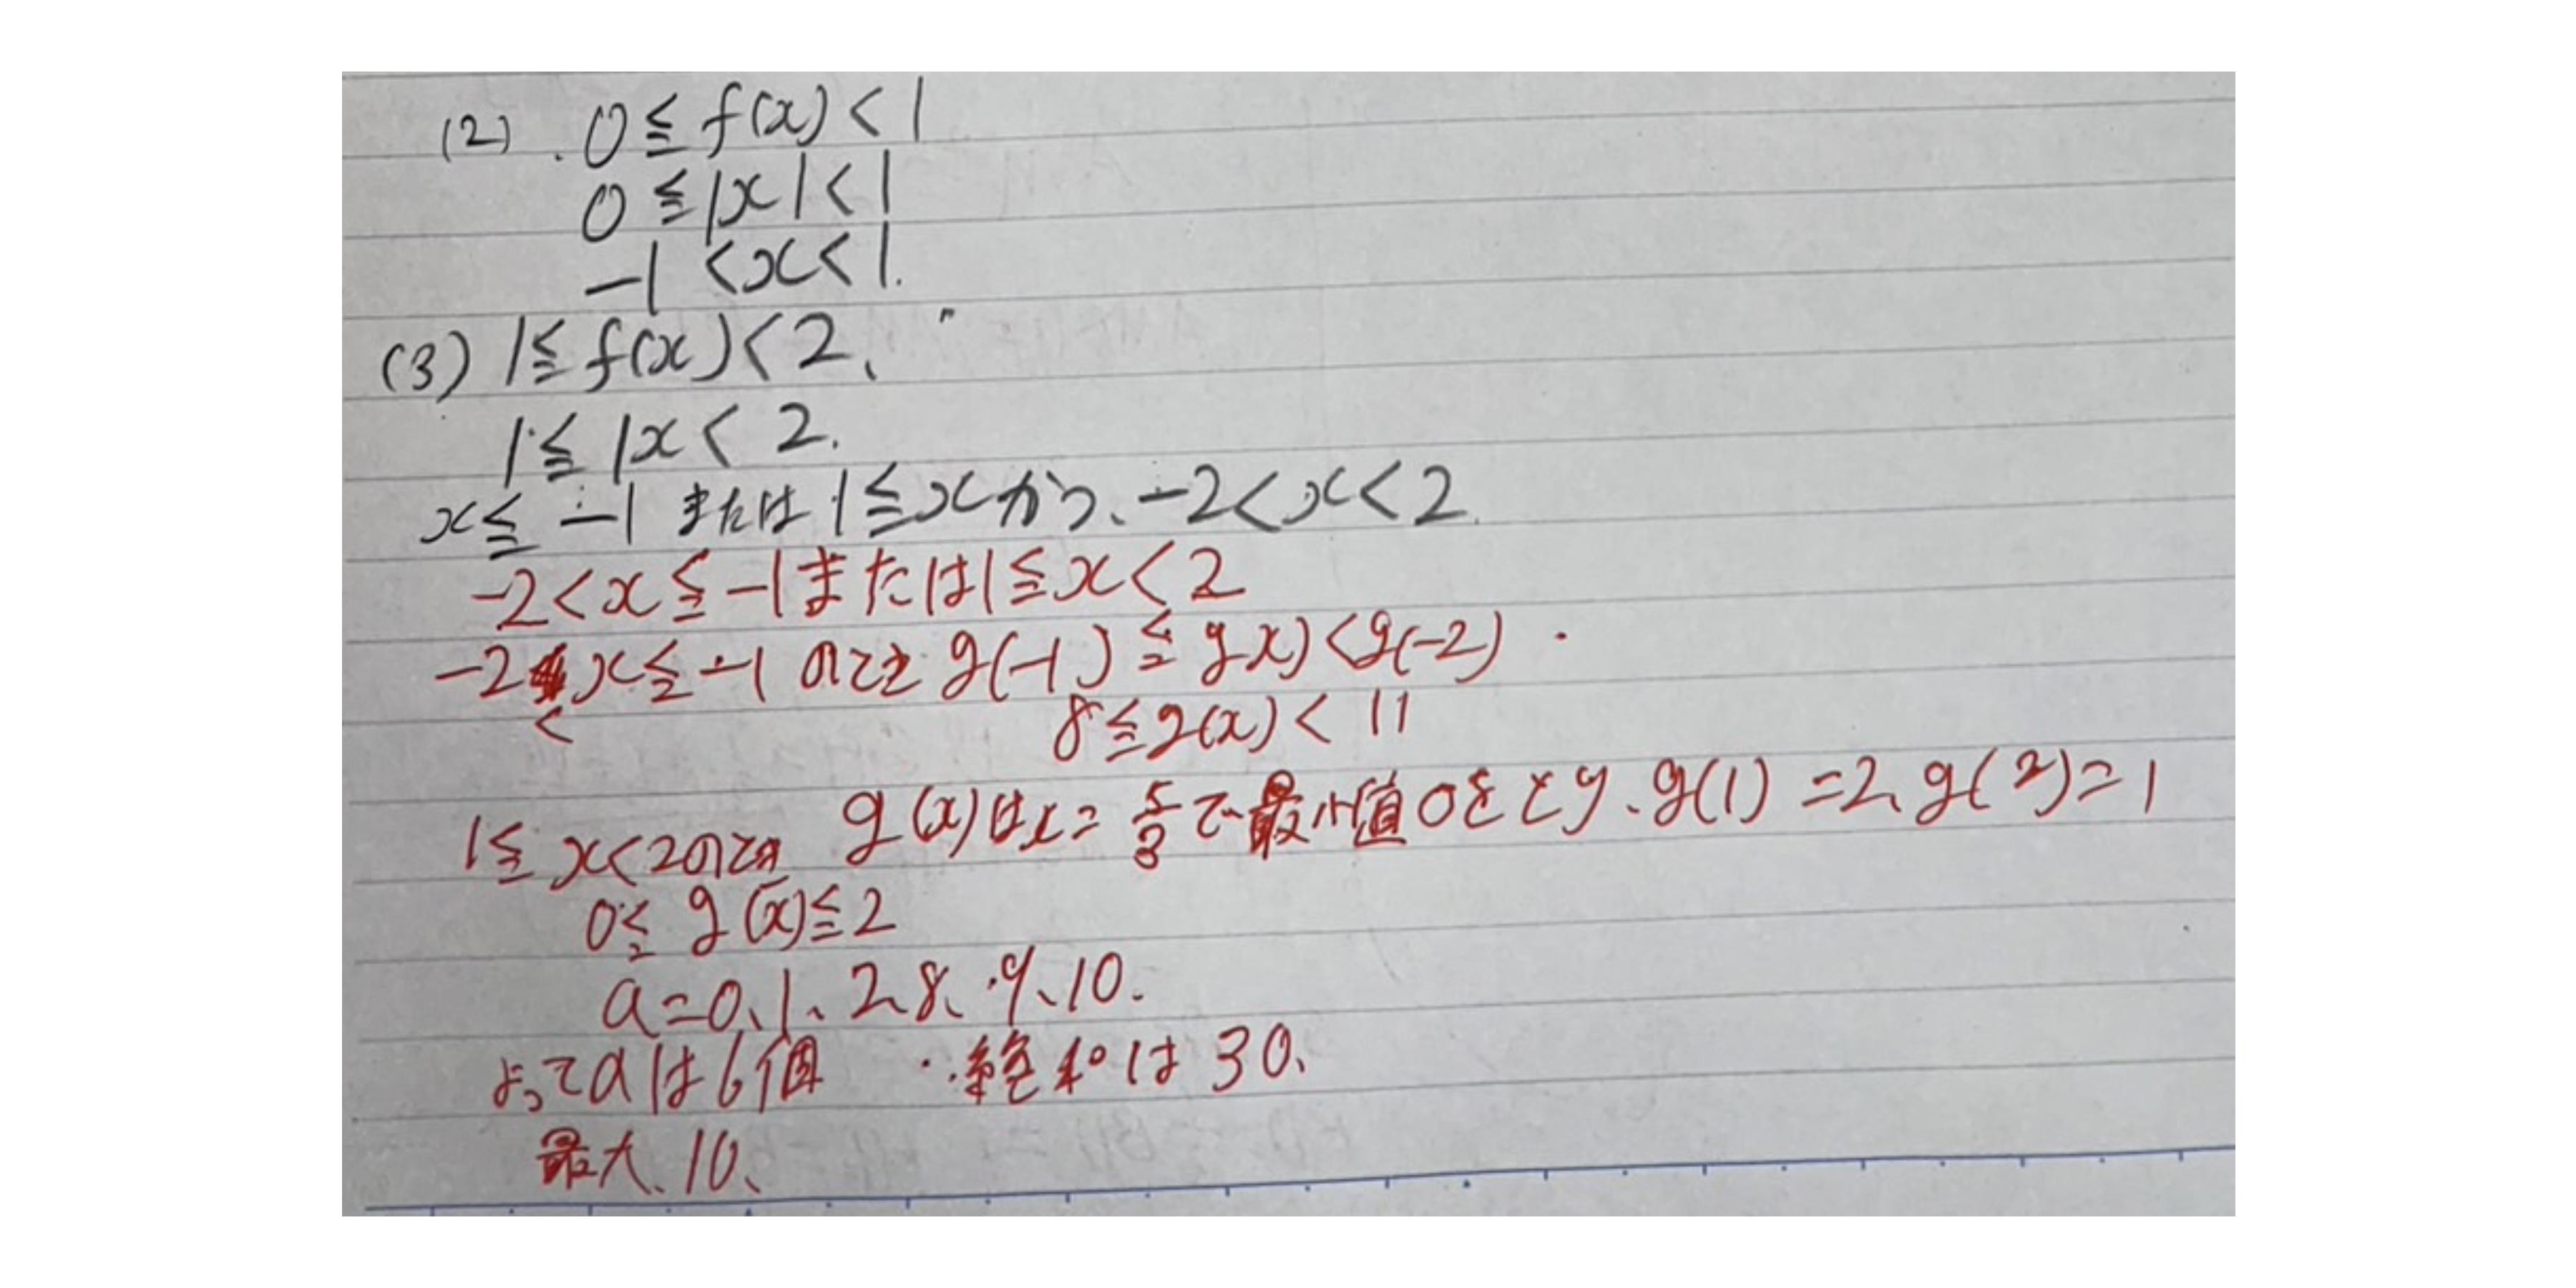 (2). 0≦f(x)<1
0≦|x|<1
-1<x<1.
(3) 1≦f(x)<2、
1≦|x<2.
x≦-1または1≦xかつ、-2<x<2.
-2<x≦-1または1≦x<2
-2<x≦-1のとき g(-1)≦gx)<g(-2)
8≦g(x)<11
1≦x<2のとき g(x)はx=5/3で最小値0をとり、g(1)=2、g(2)=1
0≦g(x)≦2
a=0、1、2、8、9、10.
よってaは6個 ∴総和は30、
最大、10、